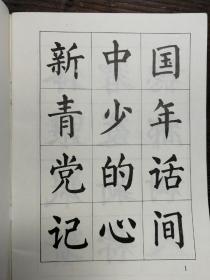 新中国
青少年
党的话
记心间
1